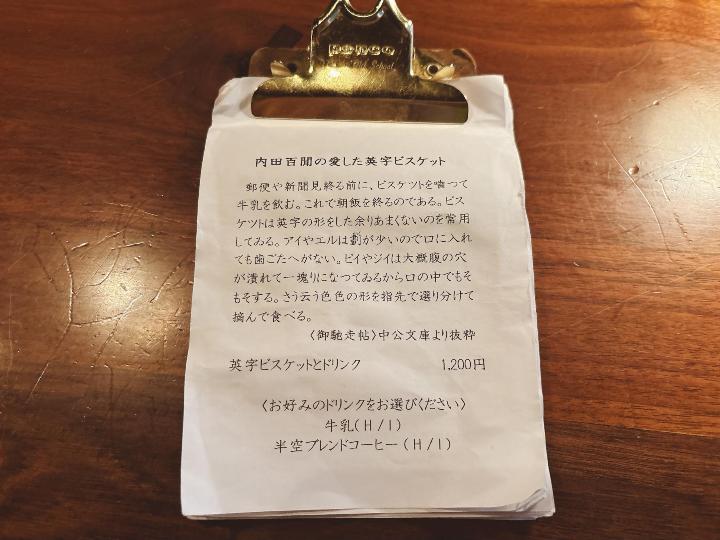 penco
Old School
内田百閒の愛した英字ビスケット
郵便や新聞見終る前に、ビスケツトを噛つて
牛乳を飲む。これで朝飯を終るのである。ビス
ケツトは英字の形をした余りあまくないのを常用
してゐる。アイやエルは劃が少いので口に入れ
ても歯ごたへがない。ビイやジイは大概腹の穴
が潰れて一塊りになつてゐるから口の中でもそ
もそする。さう云う色色の形を指先で選り分けて
摘んで食べる。
〈御馳走帖〉中公文庫より抜粋
英字ビスケットとドリンク 1,200円
〈お好みのドリンクをお選びください〉
牛乳(H/I)
半空ブレンドコーヒー(H/I)